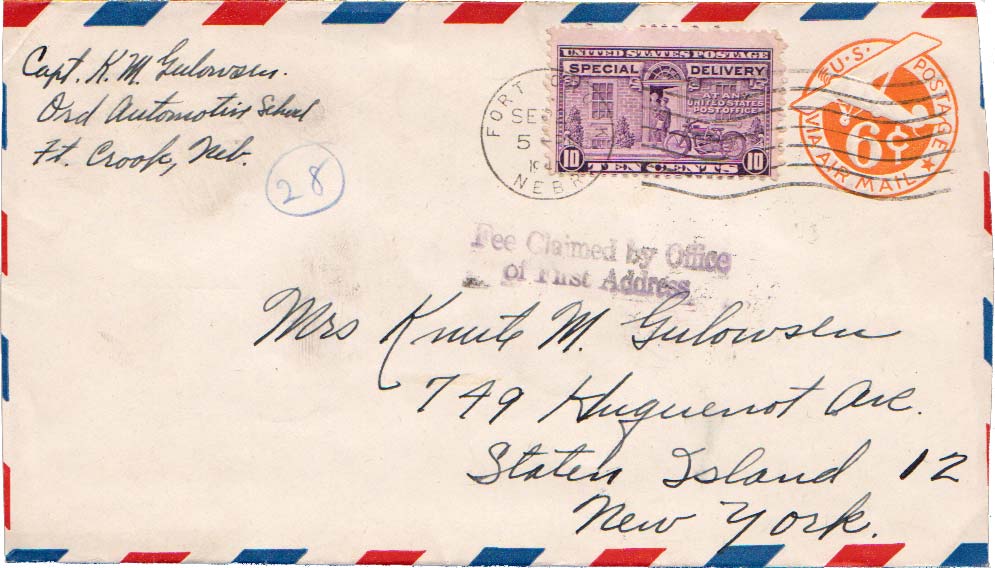 Capt. K. M. Gulowsen.
Ord Automotive School
Ft. Crook, Neb.
28
UNITED STATES POSTAGE
SPECIAL DELIVERY
AT ANY
UNITED STATES
POST OFFICE
10 TEN CENTS 10
FORT
SEP
5
NEBR
U.S. POSTAGE
6¢
VIA AIR MAIL
Fee Claimed by Office
of First Address
Mrs Knute M. Gulowsen
749 Huguenot Ave.
Staten Island 12
New York.